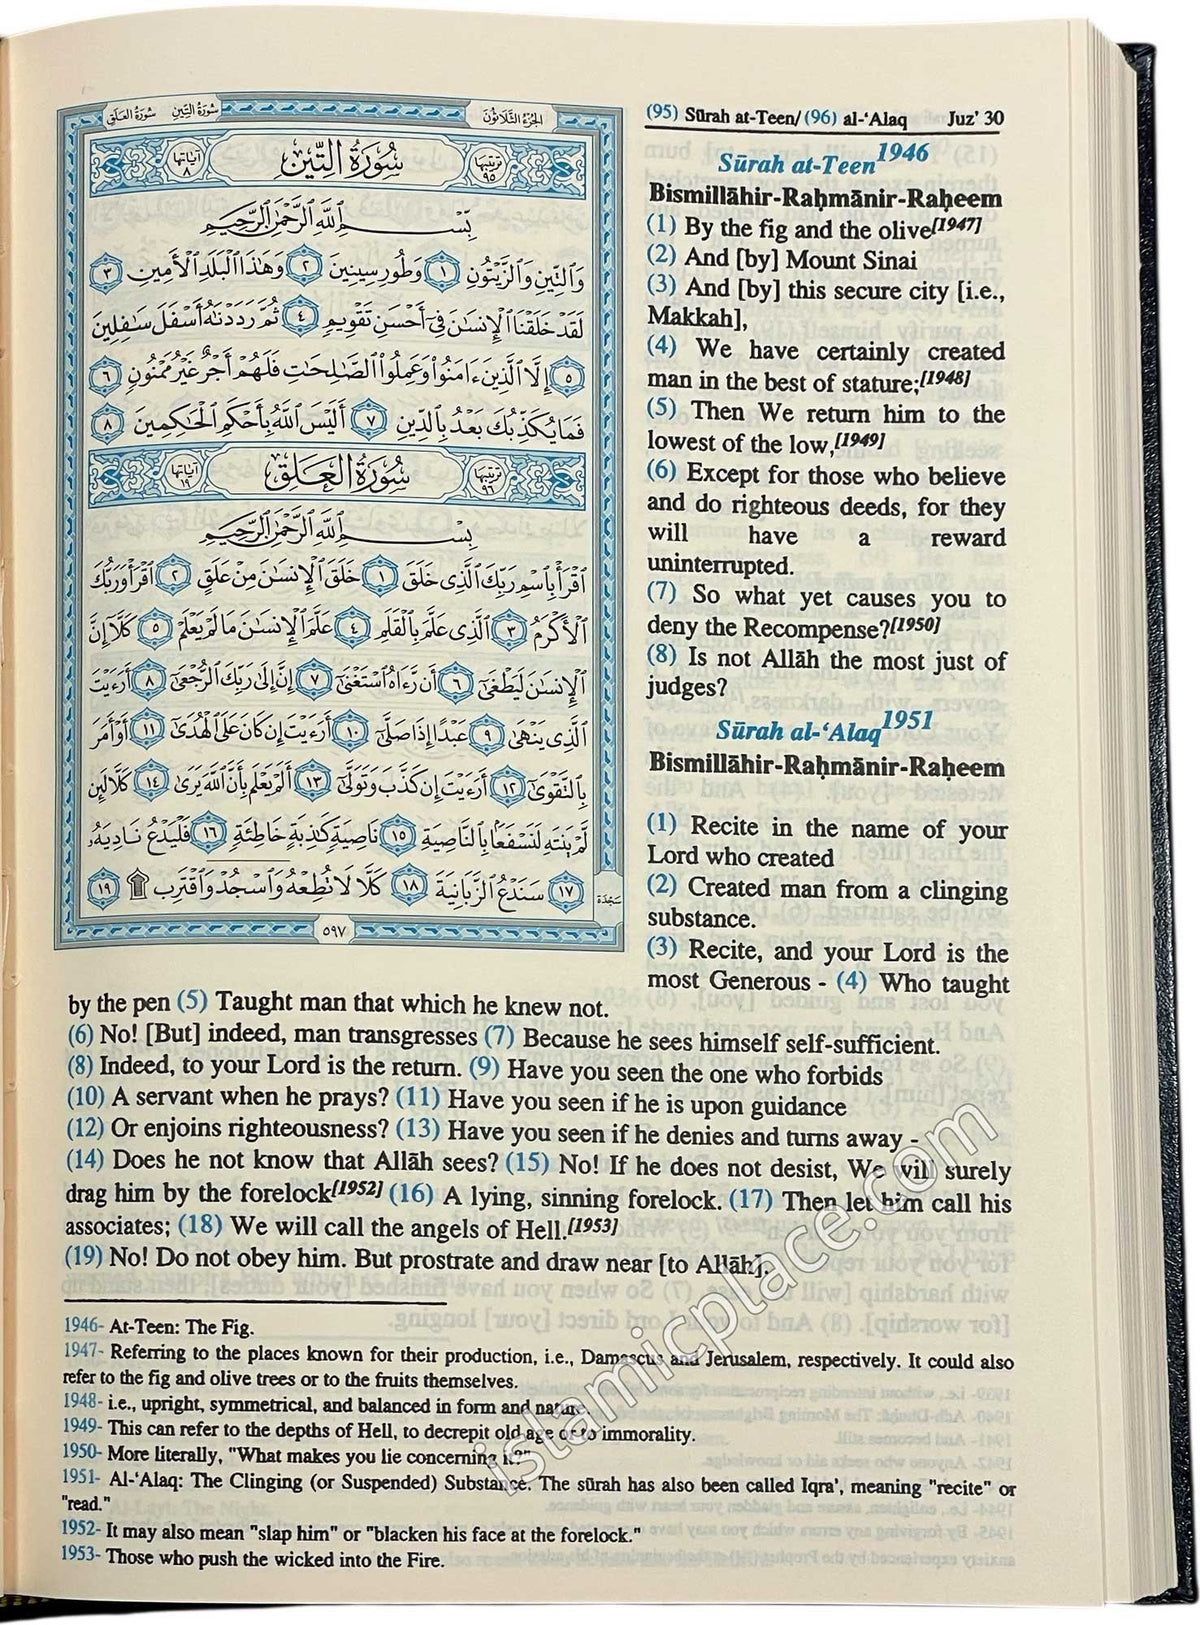 سُورَةُ التِّينِ سُورَةُ العَلَقِ
الجُزْءُ الثَّلَاثُونَ
ترتيبها ٩٥ سُورَةُ التِّينِ آياتها ٨
بِسْمِ اللَّهِ الرَّحْمَٰنِ الرَّحِيمِ
وَالتِّينِ وَالزَّيْتُونِ ١ وَطُورِ سِينِينَ ٢ وَهَٰذَا الْبَلَدِ الْأَمِينِ ٣
لَقَدْ خَلَقْنَا الْإِنسَٰنَ فِي أَحْسَنِ تَقْوِيمٍ ٤ ثُمَّ رَدَدْنَٰهُ أَسْفَلَ سَٰفِلِينَ
٥ إِلَّا الَّذِينَ ءَامَنُوا وَعَمِلُوا الصَّٰلِحَٰتِ فَلَهُمْ أَجْرٌ غَيْرُ مَمْنُونٍ ٦
فَمَا يُكَذِّبُكَ بَعْدُ بِالدِّينِ ٧ أَلَيْسَ اللَّهُ بِأَحْكَمِ الْحَٰكِمِينَ ٨
ترتيبها ٩٦ سُورَةُ العَلَقِ آياتها ١٩
بِسْمِ اللَّهِ الرَّحْمَٰنِ الرَّحِيمِ
اقْرَأْ بِاسْمِ رَبِّكَ الَّذِي خَلَقَ ١ خَلَقَ الْإِنسَٰنَ مِنْ عَلَقٍ ٢ اقْرَأْ وَرَبُّكَ
الْأَكْرَمُ ٣ الَّذِي عَلَّمَ بِالْقَلَمِ ٤ عَلَّمَ الْإِنسَٰنَ مَا لَمْ يَعْلَمْ ٥ كَلَّا إِنَّ
الْإِنسَٰنَ لَيَطْغَىٰ ٦ أَن رَّءَاهُ اسْتَغْنَىٰ ٧ إِنَّ إِلَىٰ رَبِّكَ الرُّجْعَىٰ ٨ أَرَءَيْتَ
الَّذِي يَنْهَىٰ ٩ عَبْدًا إِذَا صَلَّىٰ ١٠ أَرَءَيْتَ إِن كَانَ عَلَى الْهُدَىٰ ١١ أَوْ أَمَرَ
بِالتَّقْوَىٰ ١٢ أَرَءَيْتَ إِن كَذَّبَ وَتَوَلَّىٰ ١٣ أَلَمْ يَعْلَم بِأَنَّ اللَّهَ يَرَىٰ ١٤ كَلَّا لَئِن
لَّمْ يَنتَهِ لَنَسْفَعًا بِالنَّاصِيَةِ ١٥ نَاصِيَةٍ كَٰذِبَةٍ خَاطِئَةٍ ١٦ فَلْيَدْعُ نَادِيَهُ
١٧ سَنَدْعُ الزَّبَانِيَةَ ١٨ كَلَّا لَا تُطِعْهُ وَاسْجُدْ وَاقْتَرِب ۩ ١٩
سَجْدَة
٥٩٧
(95) Sūrah at-Teen/ (96) al-‘Alaq Juz’ 30
Sūrah at-Teen1946
Bismillāhir-Raḥmānir-Raḥeem
(1) By the fig and the olive[1947]
(2) And [by] Mount Sinai
(3) And [by] this secure city [i.e.,
Makkah],
(4) We have certainly created
man in the best of stature;[1948]
(5) Then We return him to the
lowest of the low,[1949]
(6) Except for those who believe
and do righteous deeds, for they
will have a reward
uninterrupted.
(7) So what yet causes you to
deny the Recompense?[1950]
(8) Is not Allāh the most just of
judges?
Sūrah al-‘Alaq1951
Bismillāhir-Raḥmānir-Raḥeem
(1) Recite in the name of your
Lord who created
(2) Created man from a clinging
substance.
(3) Recite, and your Lord is the
most Generous - (4) Who taught
by the pen (5) Taught man that which he knew not.
(6) No! [But] indeed, man transgresses (7) Because he sees himself self-sufficient.
(8) Indeed, to your Lord is the return. (9) Have you seen the one who forbids
(10) A servant when he prays? (11) Have you seen if he is upon guidance
(12) Or enjoins righteousness? (13) Have you seen if he denies and turns away -
(14) Does he not know that Allāh sees? (15) No! If he does not desist, We will surely
drag him by the forelock[1952] (16) A lying, sinning forelock. (17) Then let him call his
associates; (18) We will call the angels of Hell.[1953]
(19) No! Do not obey him. But prostrate and draw near [to Allāh].
1946- At-Teen: The Fig.
1947- Referring to the places known for their production, i.e., Damascus and Jerusalem, respectively. It could also
refer to the fig and olive trees or to the fruits themselves.
1948- i.e., upright, symmetrical, and balanced in form and nature.
1949- This can refer to the depths of Hell, to decrepit old age or to immorality.
1950- More literally, "What makes you lie concerning it?"
1951- Al-‘Alaq: The Clinging (or Suspended) Substance. The sūrah has also been called Iqra’, meaning "recite" or
"read."
1952- It may also mean "slap him" or "blacken his face at the forelock."
1953- Those who push the wicked into the Fire.
islamicplace.com